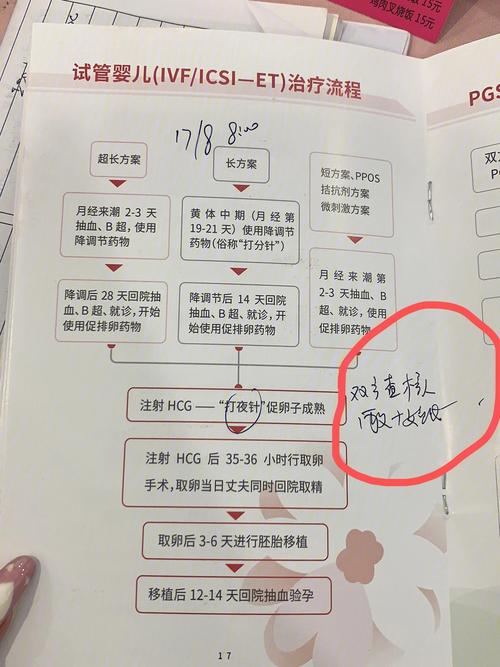 鸡肉叉烧饭 15元
试管婴儿(IVF/ICSI—ET)治疗流程
17/8 8:00
超长方案
长方案
短方案、PPOS
拮抗剂方案
微刺激方案
月经来潮 2-3 天
抽血、B 超,使用
降调节药物
黄体中期(月经第
19-21 天)使用降调节
药物(俗称“打分针”)
月经来潮第
2-3 天抽血、B
超、就诊,使用
促排卵药物
降调后 28 天回院抽
血、B 超、就诊,开始
使用促排卵药物
降调节后 14 天回院
抽血、B 超、就诊,开
始使用促排卵药物
注射 HCG —— “打夜针”促卵子成熟
注射 HCG 后 35-36 小时行取卵
手术,取卵当日丈夫同时回院取精
取卵后 3-6 天进行胚胎移植
移植后 12-14 天回院抽血验孕
17
PGS
双方